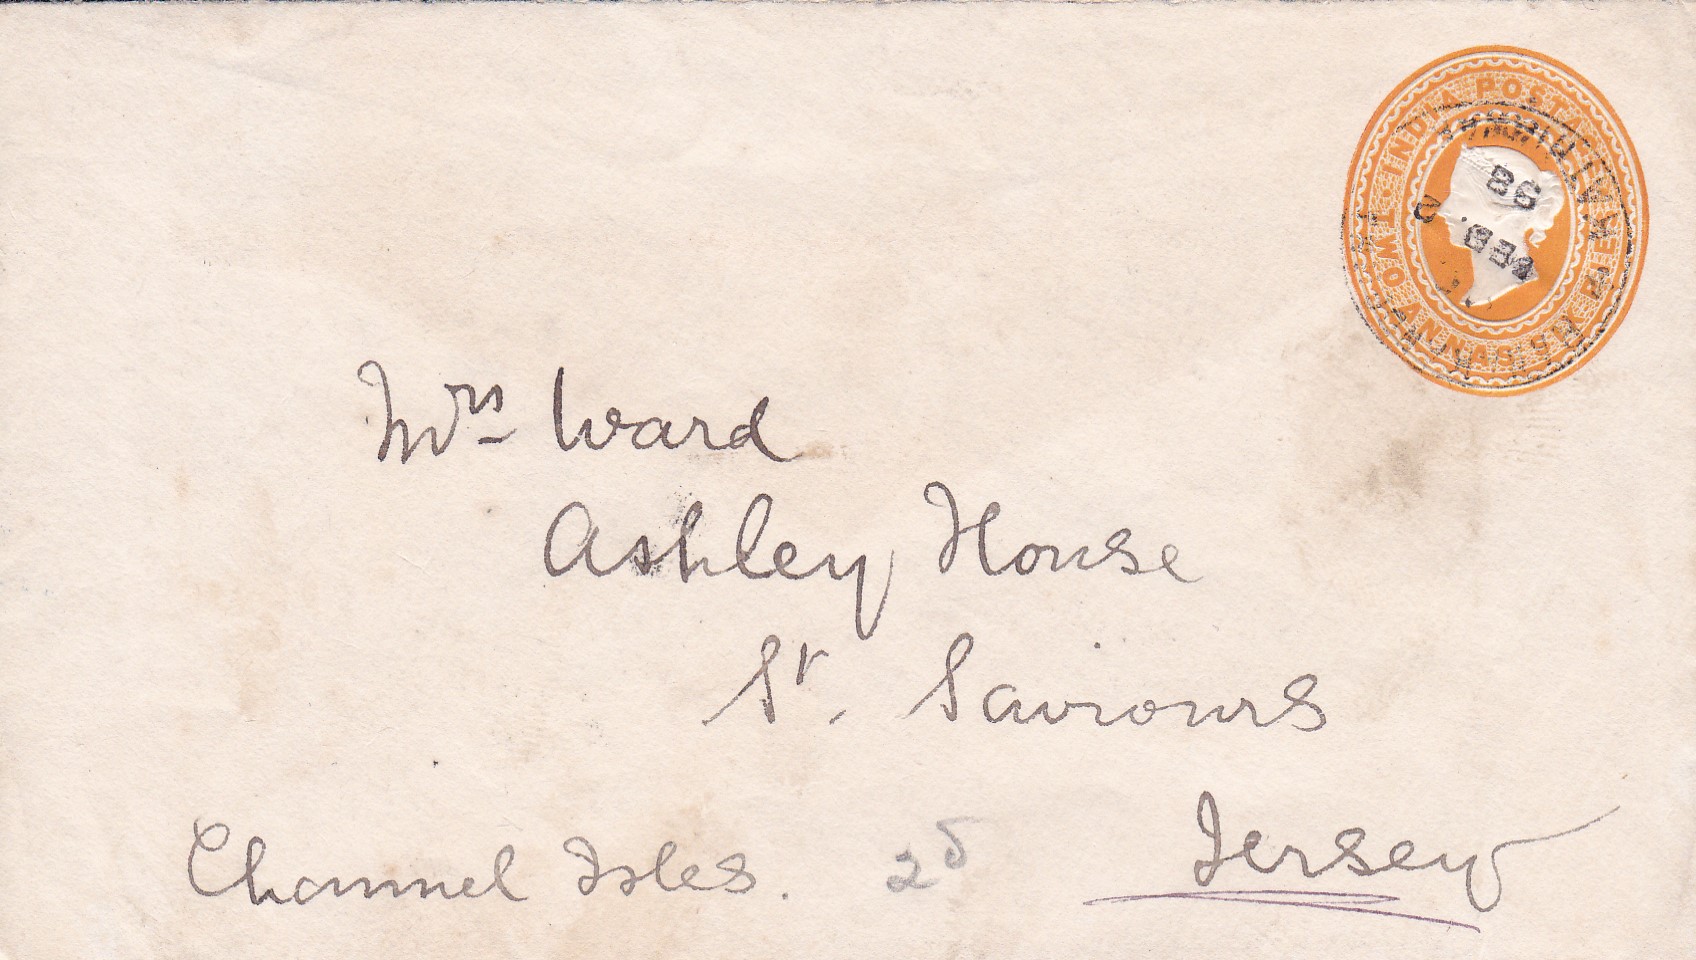 INDIA POSTAGE
TWO ANNAS SIX PIES
98
FEB
2
Mrs Ward
Ashley House
St. Saviours
Jersey
Channel Isles.
2d